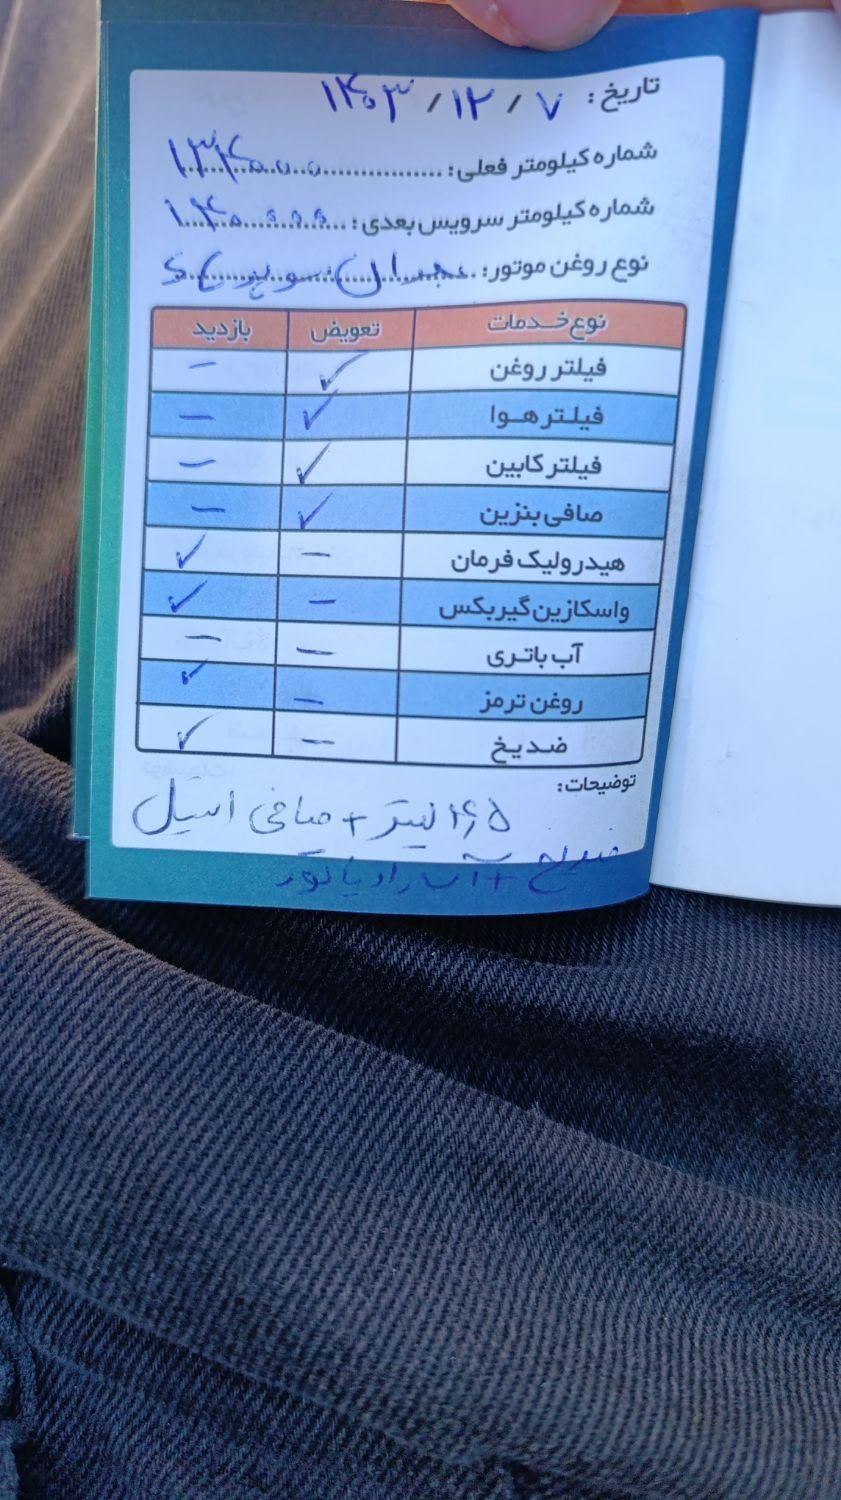 تاریخ: ۱۴۰۳/۱۲/۷
شماره کیلومتر فعلی: ۱۳۴۰۰۰
شماره کیلومتر سرویس بعدی: ۱۴۰۰۰۰
نوع روغن موتور:
نوع خدمات تعویض بازدید
فیلتر روغن ✓ –
فیلتر هوا ✓ –
فیلتر کابین ✓ –
صافی بنزین ✓ –
هیدرولیک فرمان – ✓
واسکازین گیربکس – ✓
آب باتری – –
روغن ترمز – ✓
ضد یخ – ✓
توضیحات:
۴٫۵ لیتر + صافی اسیل
ضدیخ + آب رادیاتور